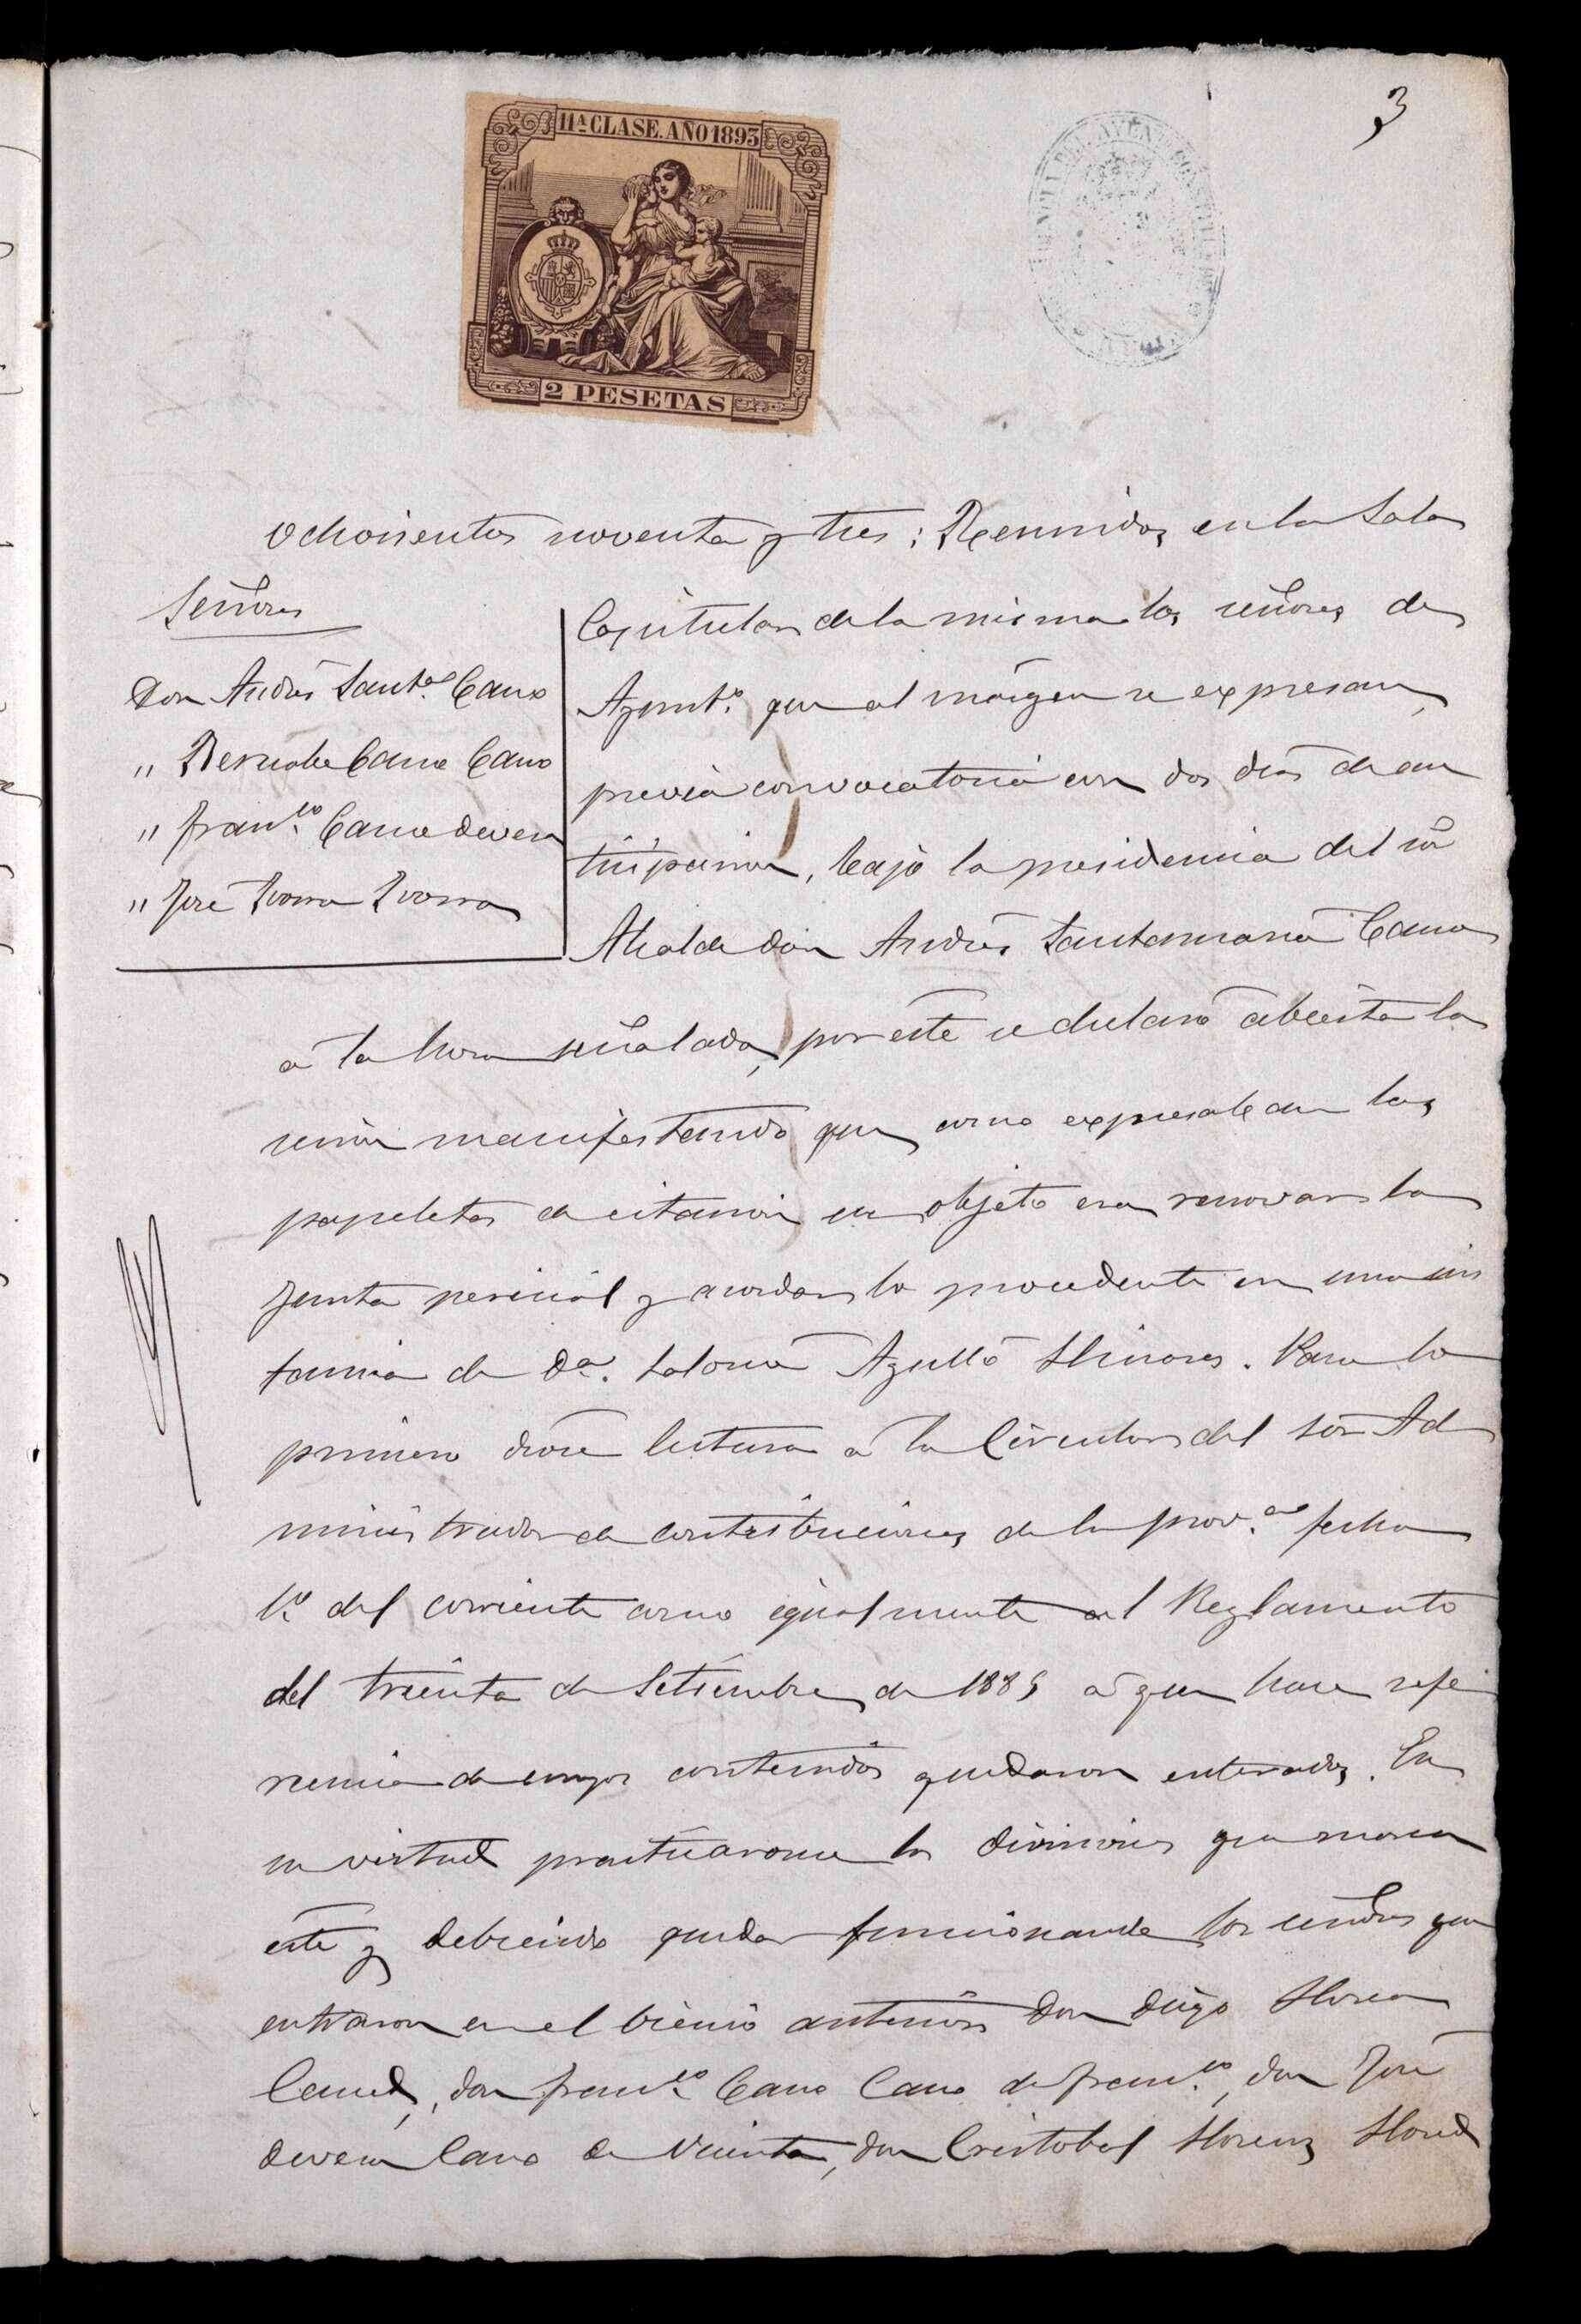 3
11ª CLASE. AÑO 1893
2 PESETAS
ochocientos noventa y tres; Reunidos en la Sala
Señores
Don Andrés Santª Cano
" Bernabe Cano Cano
" Franco Cano Devesa
" José Ivorra Ivorra
Capitular de la misma los señores de
Ayuntº que al márgen se expresan,
previa convocatoria con dos dias de an
ticipacion, bajo la presidencia del sr
Alcalde don Andrés Santamaria Cano
a la hora señalada, por este se declaró abierta la
sesion manifestando que como expresaban las
papeletas de citacion su objeto era renovar la
Junta pericial y acordar lo procedente en una ins
tancia de Dª. Agulló Llinares. Para lo
primero diose lectura a la Circular del sor Ad
ministrador de contribuciones de la provª fecha
1º del corriente como igualmente al Reglamento
del treinta de Setiembre de 1885 a que hace refe
rencia de cuyos contenidos quedaron enterados. En
su virtud practicaronse las divisiones que marca
este y debiendo quedar funcionando los señores que
entraron en el bienio anterior Don Diego Llorca
, don Franco Cano Cano de Franco, don José
Devesa Cano de Vicenta, don Cristobal Llorens